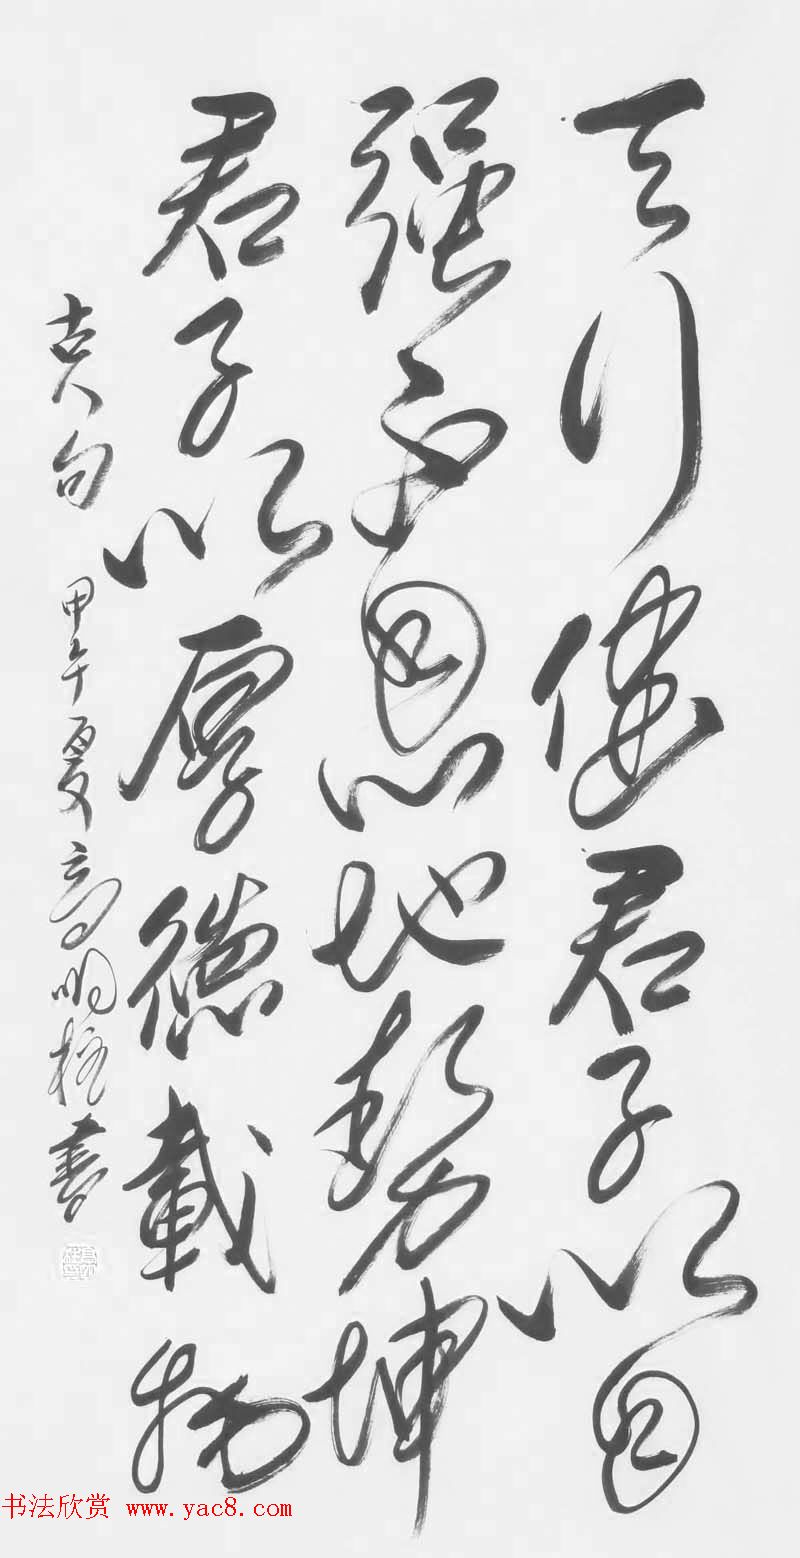 天行健君子以自
强不息地勢坤
君子以厚德載物
古人句 甲午夏高明書
书法欣赏 www.yac8.com